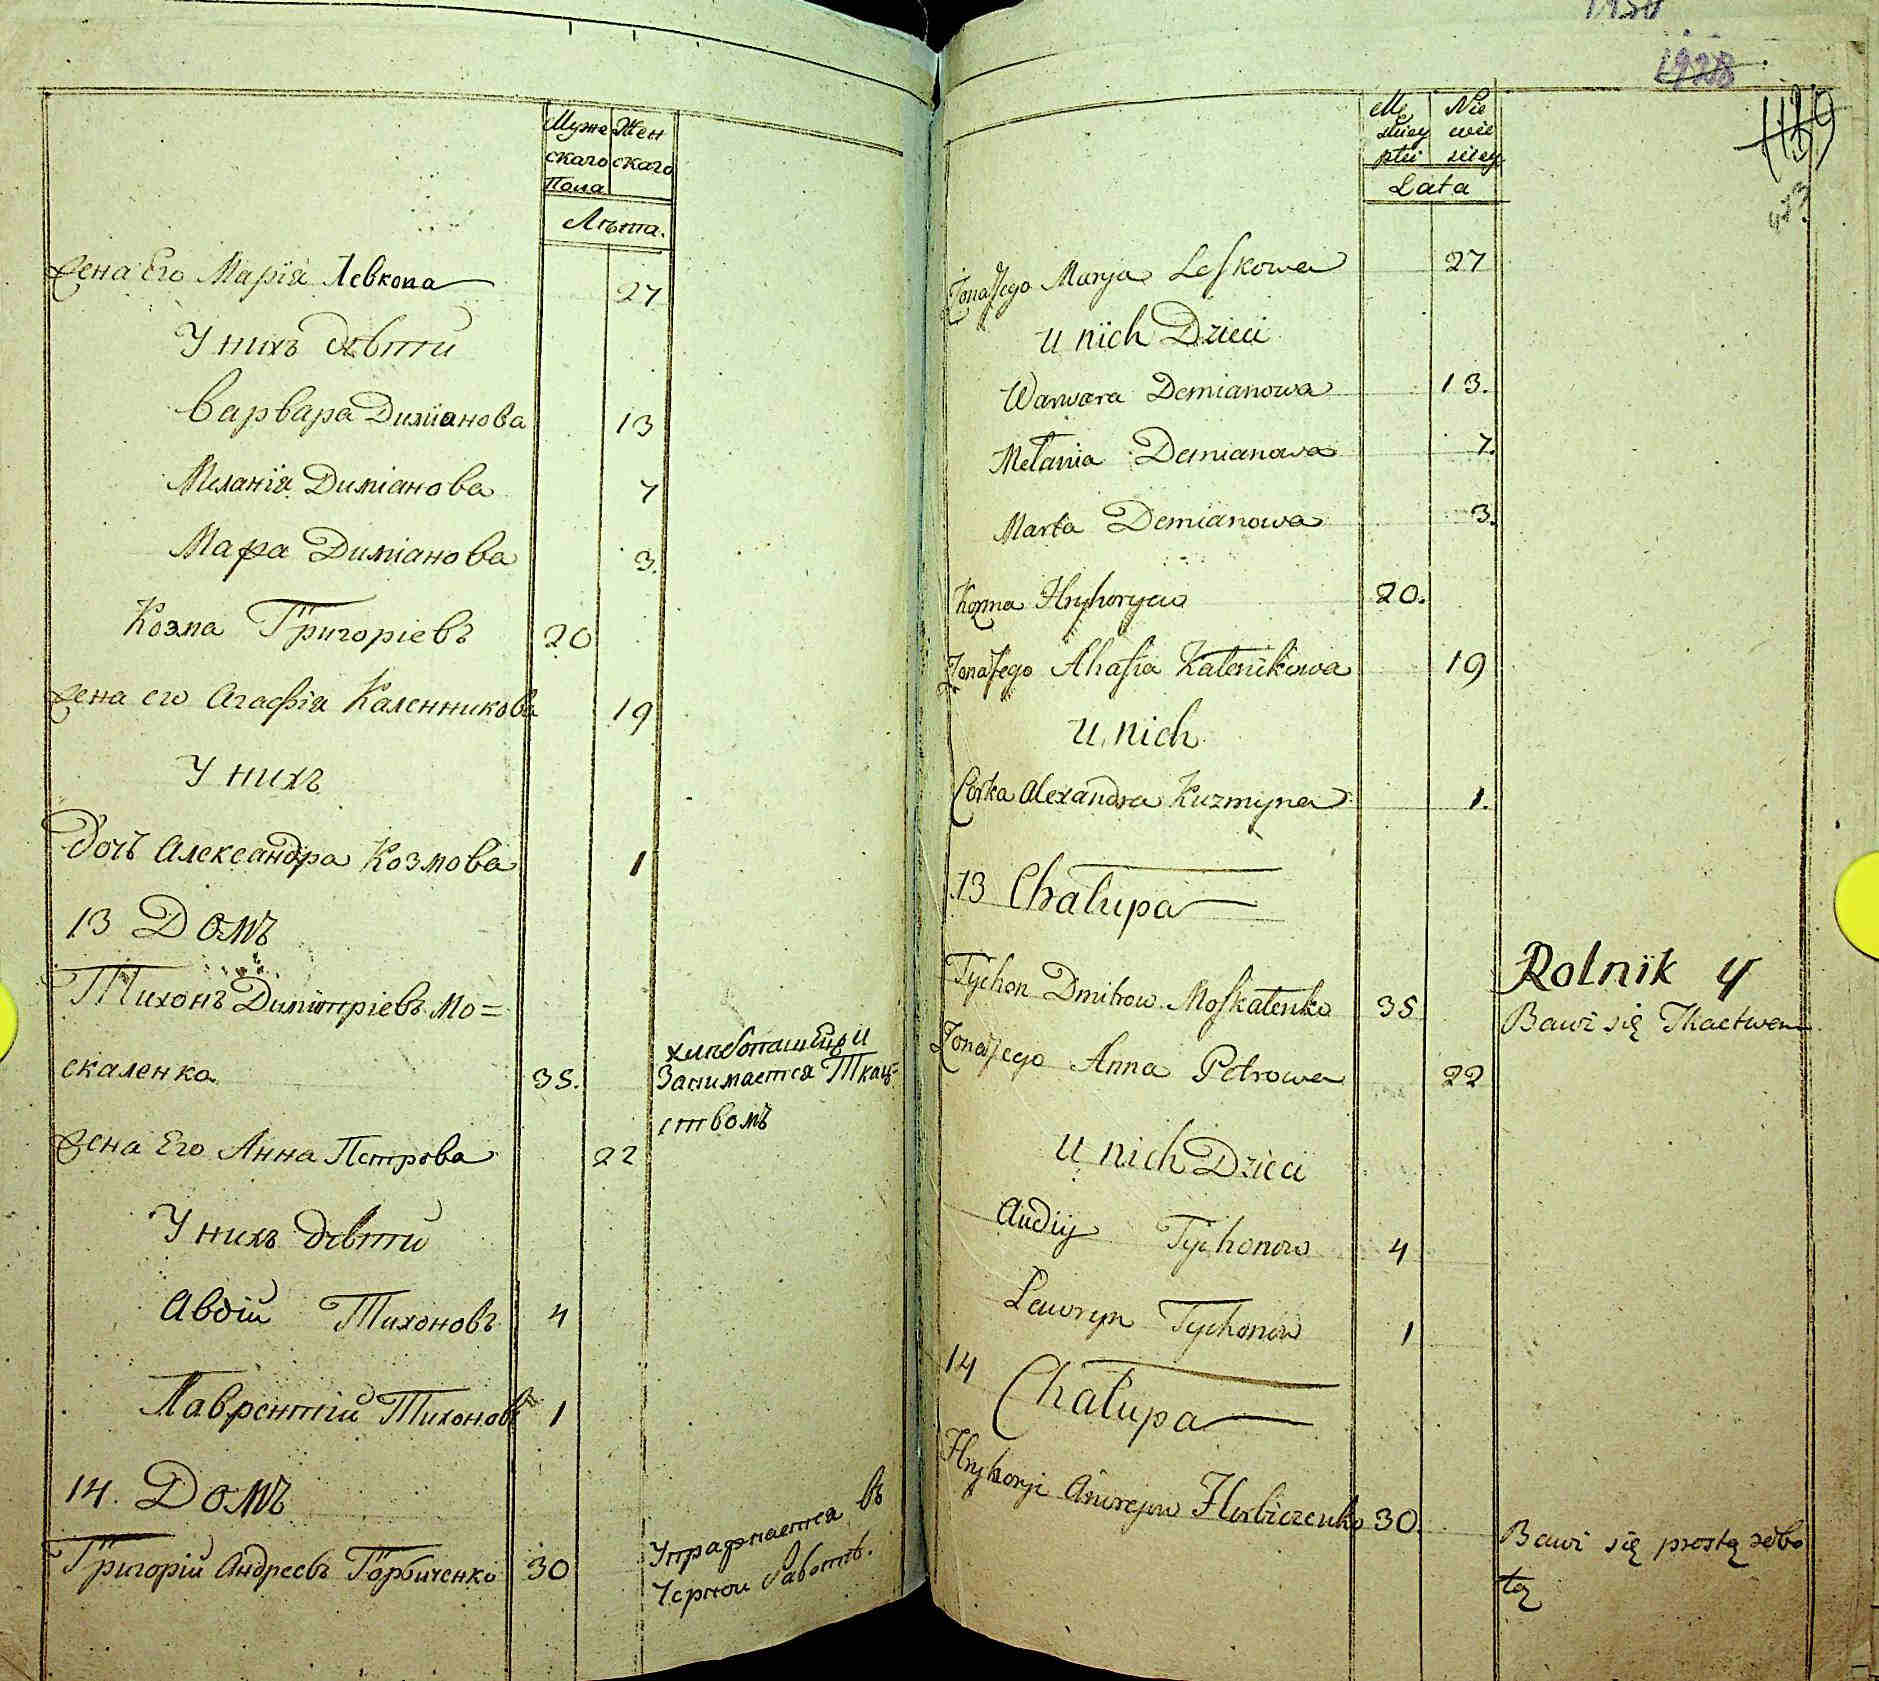 Муже Жен
скаго скаго
Пола
Лѣта.
Жена Его Марія Левкова 27
У нихъ дѣти
Варвара Диміанова 13
Миланія Диміанова 7
Марѳа Диміанова 3.
Козма Григоріевъ 20
Жена его Агафія Каленникова 19
У нихъ
Дочь Александра Козмова 1
13 Домъ
Тихонъ Димитріевъ Мо=
скаленко 35.
хлебопашецъ и
Занимается Ткач=
ствомъ
Жена Его Анна Петрова 22
У нихъ дѣти
Авдій Тихоновъ 4
Лаврентій Тихоновъ 1
14. Домъ
Григорій Андреевъ Горбиченко 30
Упражняется въ
Черной Работѣ.
1928
Mę Nie
skiey wie
płci skiey
Lata
Żona Jego Marya Leskowa 27
u nich Dzieci
Warwara Demianowa 13.
Melania Demianowa 7.
Marta Demianowa 3.
Kozma Hryhoryew 20.
Żona Jego Ahafia Kalenikowa 19
u nich
Córka Alexandra Kuzmyna 1.
13 Chalupa
Tychon Dmitrow Moskalenko 35
Rolnik y
Bawi się Tkactwem
Żona Jego Anna Petrowa 22
u nich Dzieci
Audiy Tychonow 4
Lawryn Tychonow 1
14
Chalupa
Hryhoryi Andrejew Horbiczenko 30.
Bawi się prostą robo
tą